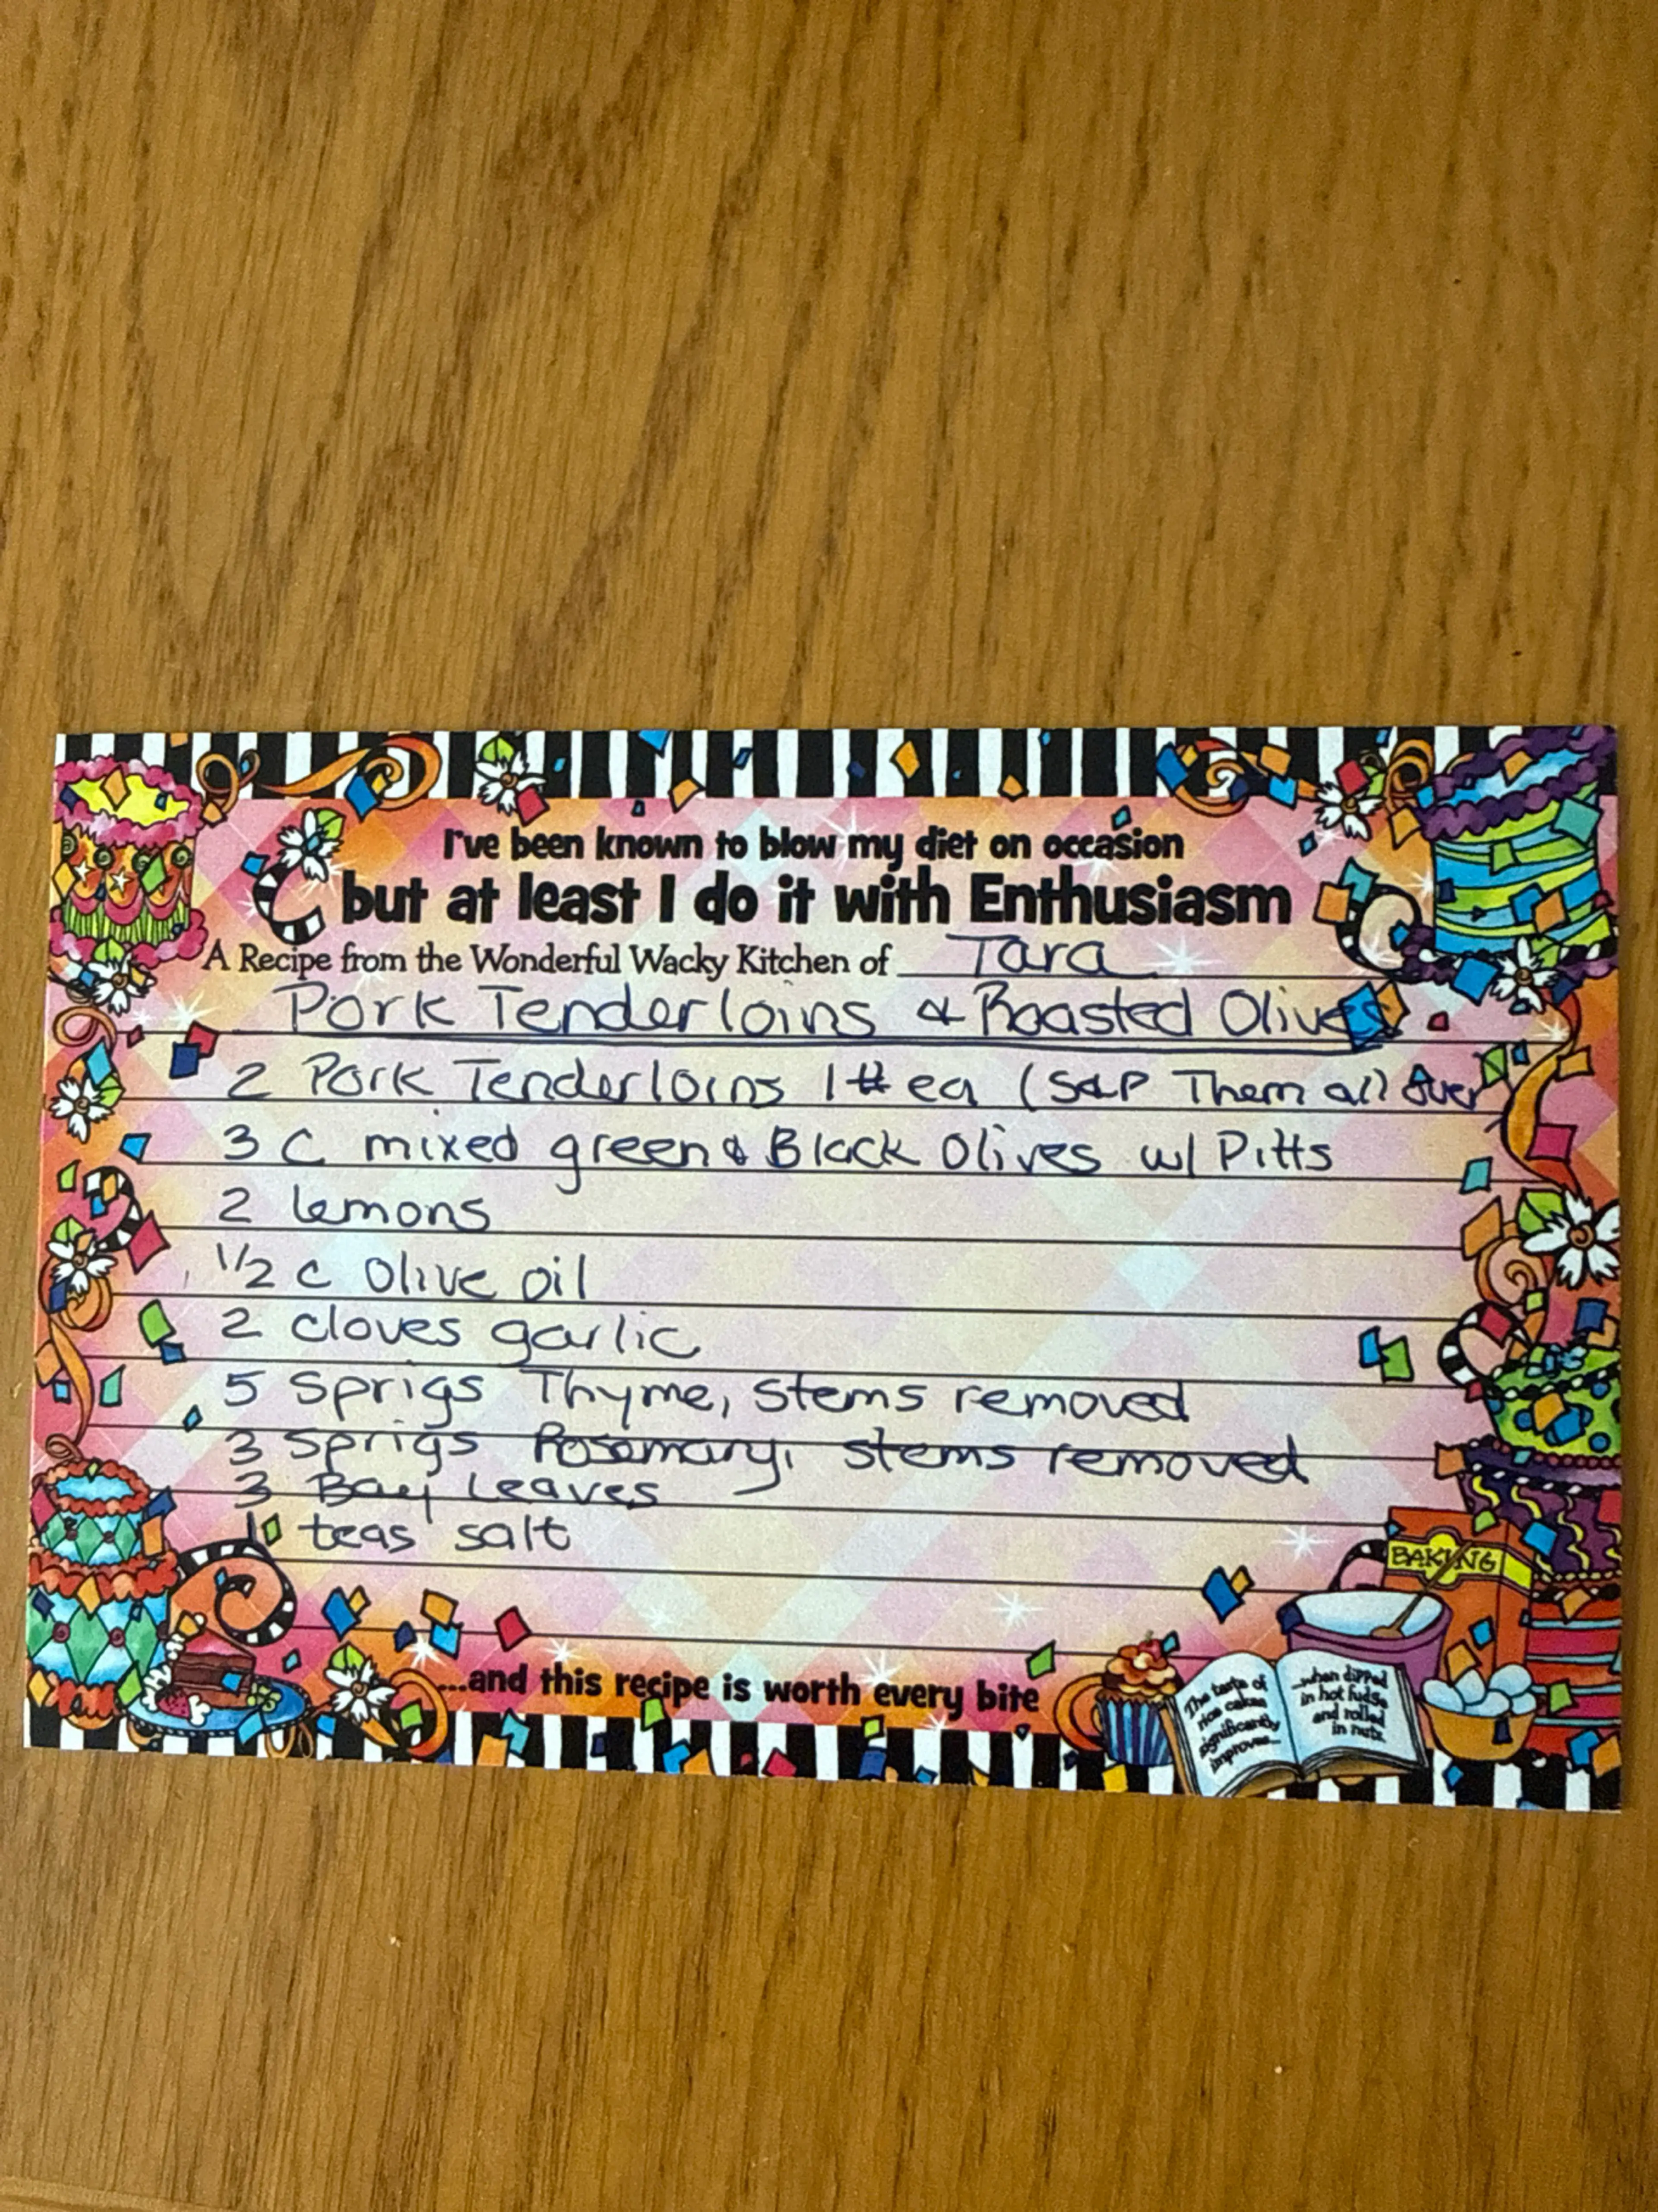 I've been known to blow my diet on occasion
but at least I do it with Enthusiasm
A Recipe from the Wonderful Wacky Kitchen of Tara
Pork Tenderloins & Roasted Olives
2 Pork Tenderloins 1# ea (S&P Them all over
3 C mixed green & Black Olives w/ Pitts
2 lemons
1/2 C Olive oil
2 cloves garlic
5 Sprigs Thyme, Stems removed
3 Sprigs Rosemary, stems removed
3 Bay Leaves
1 teas salt
BAKING
...and this recipe is worth every bite
The taste of
rice cakes
significantly
improves...
...when dipped
in hot fudge
and rolled
in nuts.